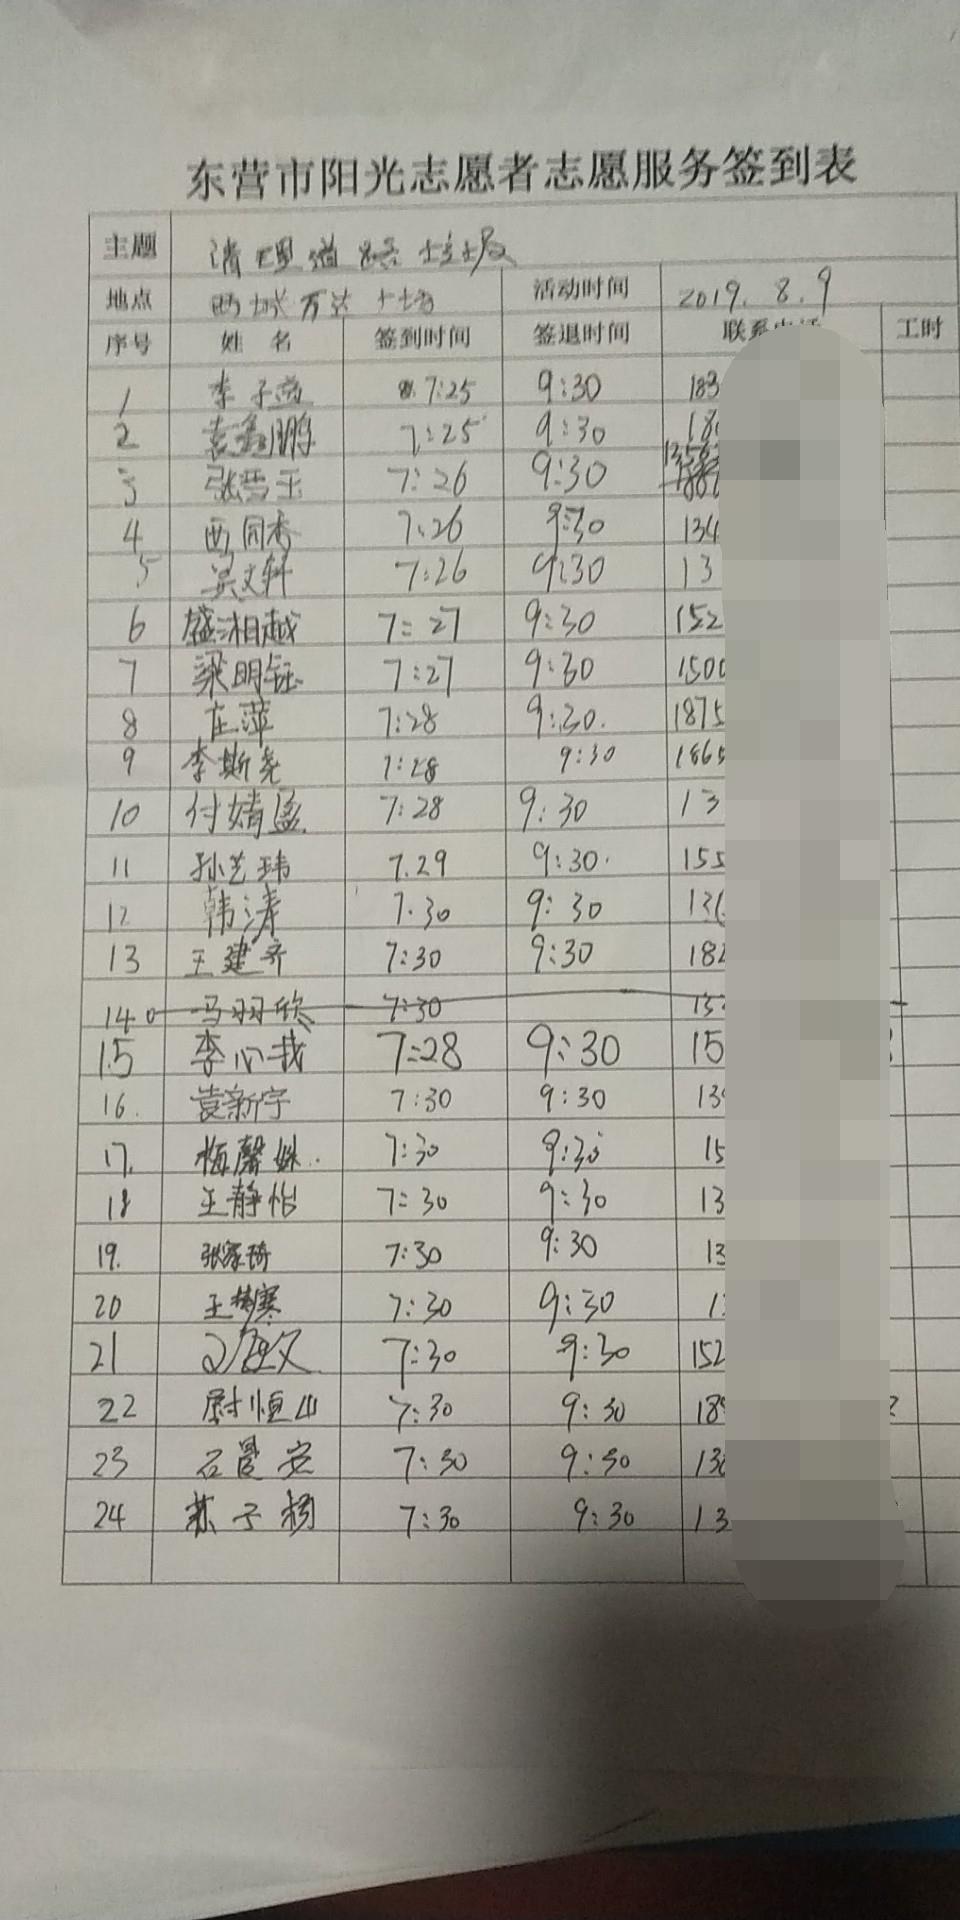 东营市阳光志愿者志愿服务签到表
主题 清理道路垃圾
地点 西城万达广场 活动时间 2019.8.9
序号 姓名 签到时间 签退时间 联系电话 工时
1 李子 7:25 9:30 183
2 袁鑫鹏 7:25 9:30 18
3 张雪玉 7:26 9:30
4 西同秀 7:26 9:30 134
5 吴文轩 7:26 9:30 13
6 盛湘越 7:27 9:30 152
7 梁明钰 7:27 9:30 1500
8 庄萍 7:28 9:30. 1875
9 李斯尧 7:28 9:30 1865
10 付婧 7:28 9:30 13
11 孙艺玮 7.29 9:30. 155
12 韩涛 7.30 9:30 13
13 王建齐 7:30 9:30 182
14 马羽欣 7:30 15
15 李心我 7:28 9:30 15
16. 袁新宇 7:30 9:30 13
17. 梅馨姝.. 7:30 9:30 15
18 王静怡 7:30 9:30 13
19. 张家琦 7:30 9:30 13
20 王梦寒 7:30 9:30 1
21 7:30 9:30 152
22 尉恒山 7:30 9:30 189
23 石 安 7:30 9:30 13
24 苏子杨 7:30 9:30 13